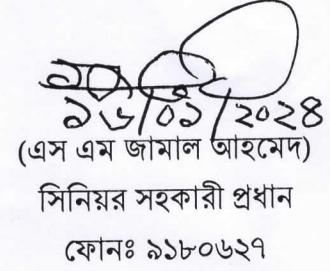 ১৬/০১/২০২৪
(এস এম জামাল আহমেদ)
সিনিয়র সহকারী প্রধান
ফোনঃ ৯১৮০৬২৭